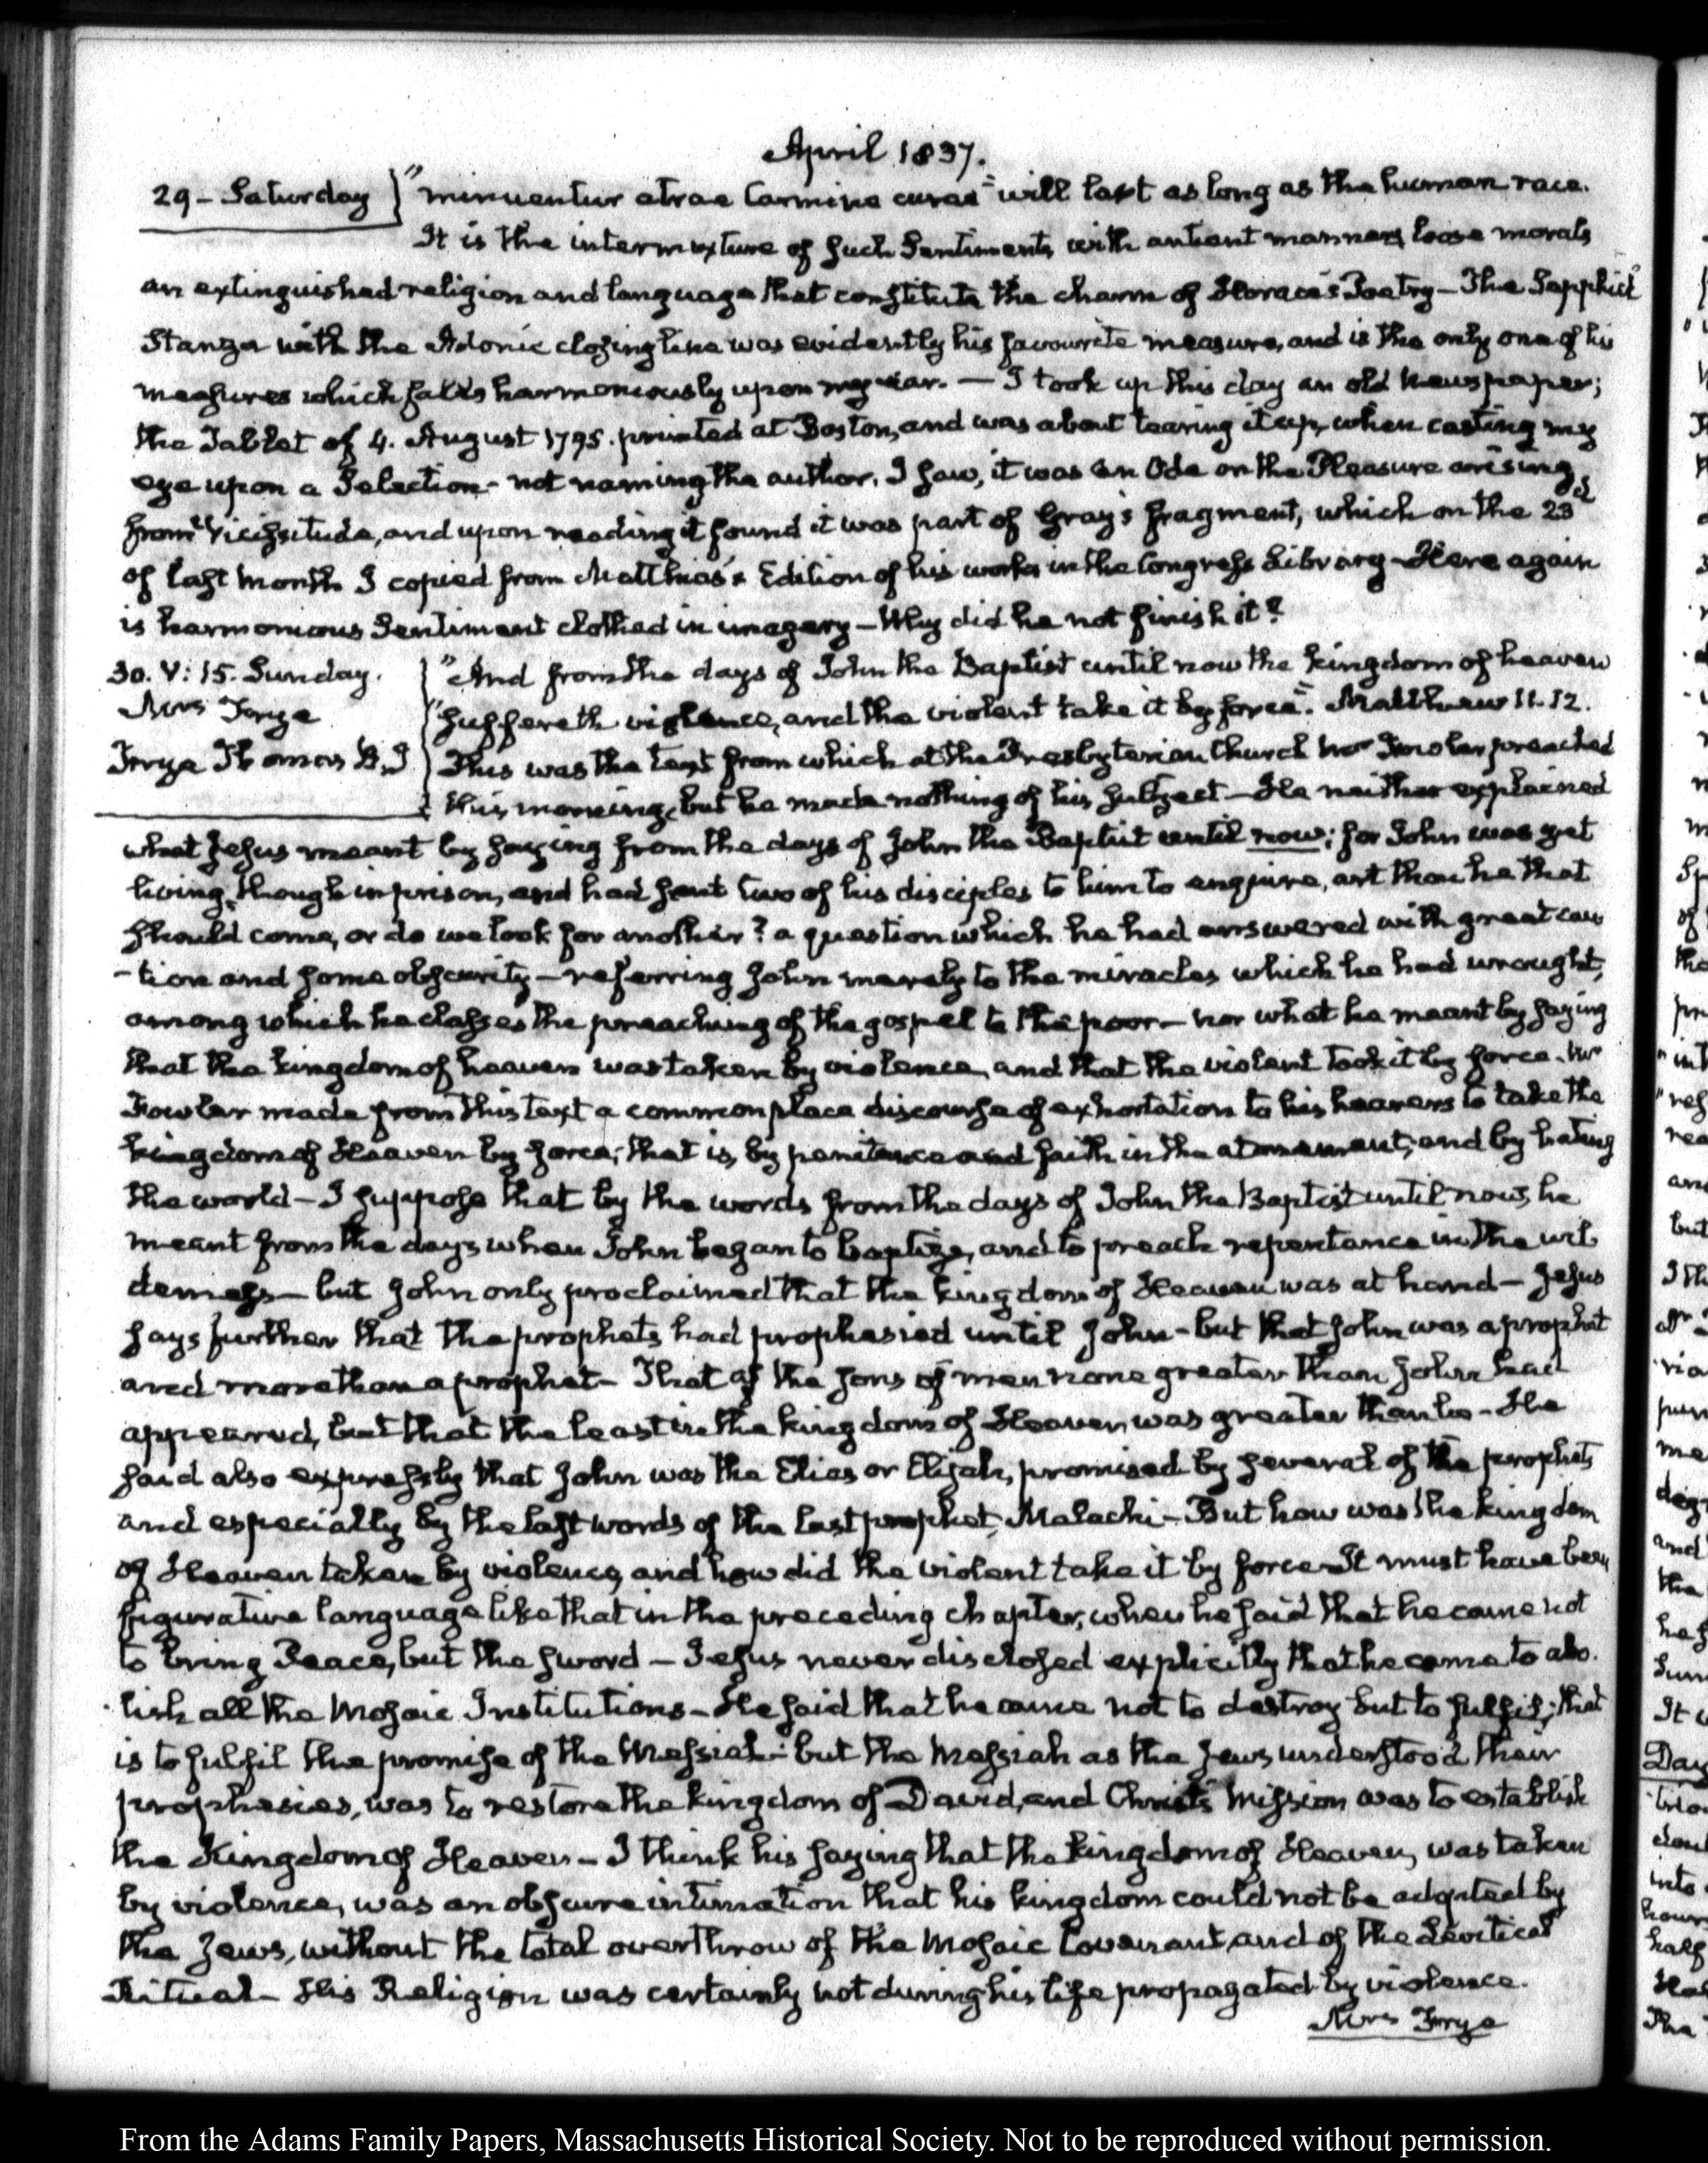 April 1837.
29 - Saturday } "minuentur atrae Carmine curae" will last as long as the human race.
It is the intermixture of such Sentiments with antient manners loose morals
an extinguished religion and language that constitute the charm of Horace's Poetry - The Sapphick
Stanza with the Adonic closing line was evidently his favourite measure, and is the only one of his
measures which falls harmoniously upon my ear. — I took up this day an old Newspaper;
the Tablet of 4. August 1795. printed at Boston, and was about tearing it up, when casting my
eye upon a Selection - not naming the author. I saw, it was an Ode on the Pleasure arising
from Vicissitude, and upon reading it found it was part of Gray's fragment, which on the 23d
of last month I copied from Matthias's Edition of his works in the Congress Library - Here again
is harmonious Sentiment clothed in imagery - Why did he not finish it?
30. V: 15. Sunday. } "And from the days of John the Baptist until now the kingdom of heaven
Mrs Frye "suffereth violence, and the violent take it by force". Matthew 11. 12.
Frye Thomas B. J } This was the text from which at the Presbyterian Church Mr Fowler preached
this morning, but he made nothing of his subject - He neither explained
what Jesus meant by saying from the days of John the Baptist until now; for John was yet
living, though in prison, and had sent two of his disciples to him to enquire, art thou he that
should come, or do we look for another? a question which he had answered with great cau
-tion and some obscurity - referring John merely to the miracles which he had wrought,
among which he classes the preaching of the gospel to the poor - nor what he meant by saying
that the kingdom of heaven was taken by violence, and that the violent took it by force. Mr
Fowler made from this text a common place discourse of exhortation to his hearers to take the
kingdom of Heaven by force; that is, by penitence and faith in the atonement, and by hating
the world - I suppose that by the words from the days of John the Baptist until now, he
meant from the days when John began to baptize, and to preach repentance in the wil
derness - but John only proclaimed that the kingdom of Heaven was at hand - Jesus
says further that the prophets had prophesied until John - but that John was a prophet
and more than a prophet - That of the sons of men none greater than John had
appeared, but that the least in the kingdom of Heaven was greater than he - He
said also expressly that John was the Elias or Elijah, promised by several of the prophets
and especially by the last words of the last prophet, Malachi - But how was the kingdom
of Heaven taken by violence, and how did the violent take it by force It must have been
figurative language like that in the preceding chapter, when he said that he came not
to bring Peace, but the sword - Jesus never disclosed explicitly that he came to abo.
lish all the Mosaic Institutions - He said that he came not to destroy but to fulfil; that
is to fulfil the promise of the Messiah - but the Messiah as the Jews understood their
prophesies, was to restore the kingdom of David, and Christ's Mission was to establish
the Kingdom of Heaven - I think his saying that the kingdom of Heaven, was taken
by violence, was an obscure intimation that his kingdom could not be adopted by
the Jews, without the total overthrow of the Mosaic Covenant, and of the Levitical
Ritual - His Religion was certainly not during his life propagated by violence.
Mrs Frye
From the Adams Family Papers, Massachusetts Historical Society. Not to be reproduced without permission.